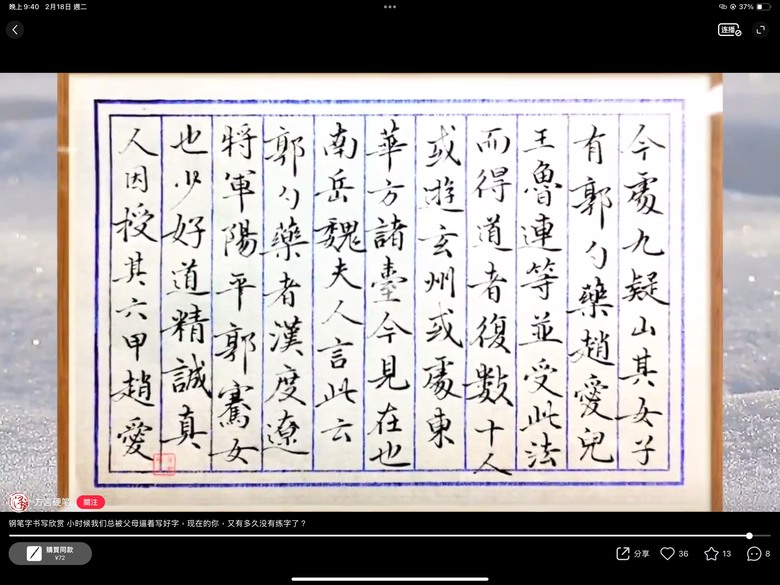 晚上9:40 2月18日 週二
37%
连播
今處九疑山其女子
有郭勺藥趙愛兒
王魯連等並受此法
而得道者復數十人
或遊玄州或處東
華方諸臺今見在也
南岳魏夫人言此云
郭勺藥者漢度遼
將軍陽平郭騫女
也少好道精誠真
人因授其六甲趙愛
方言硬笔
關注
钢笔字书写欣赏 小时候我们总被父母逼着写好字，现在的你，又有多久没有练字了？
購買同款
¥72
分享
36
13
8